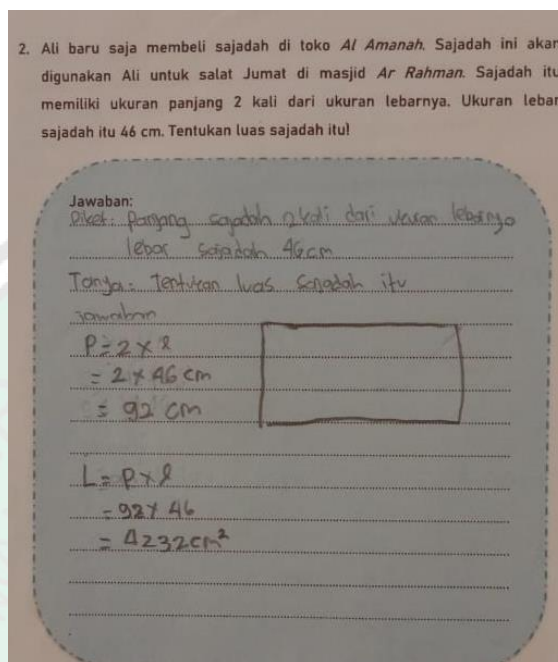 2. Ali baru saja membeli sajadah di toko Al Amanah. Sajadah ini akan
digunakan Ali untuk salat Jumat di masjid Ar Rahman. Sajadah itu
memiliki ukuran panjang 2 kali dari ukuran lebarnya. Ukuran lebar
sajadah itu 46 cm. Tentukan luas sajadah itu!
Jawaban:
Diket: Panjang sajadah 2 kali dari ukuran lebarnya
lebar sajadah 46 cm
Tanya: Tentukan luas sajadah itu
jawaban
P = 2 x l
= 2 x 46 cm
= 92 cm
L = p x l
= 92 x 46
= 4232 cm²